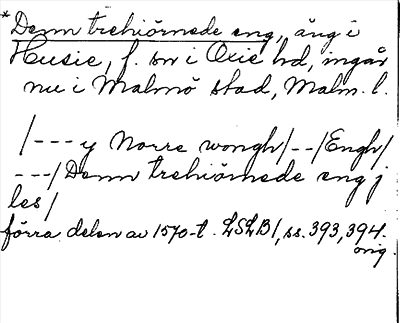 *Denn trehiörnede eng, äng i
Husie, f. sn i Oxie hd, ingår
nu i Malmö stad, Malm. l.
/--- y Norre wongh/--/Engh/
---/Denn trehiörnede eng j
les/
förra delen av 1570-t. LSLB1, ss. 393, 394.
orig.